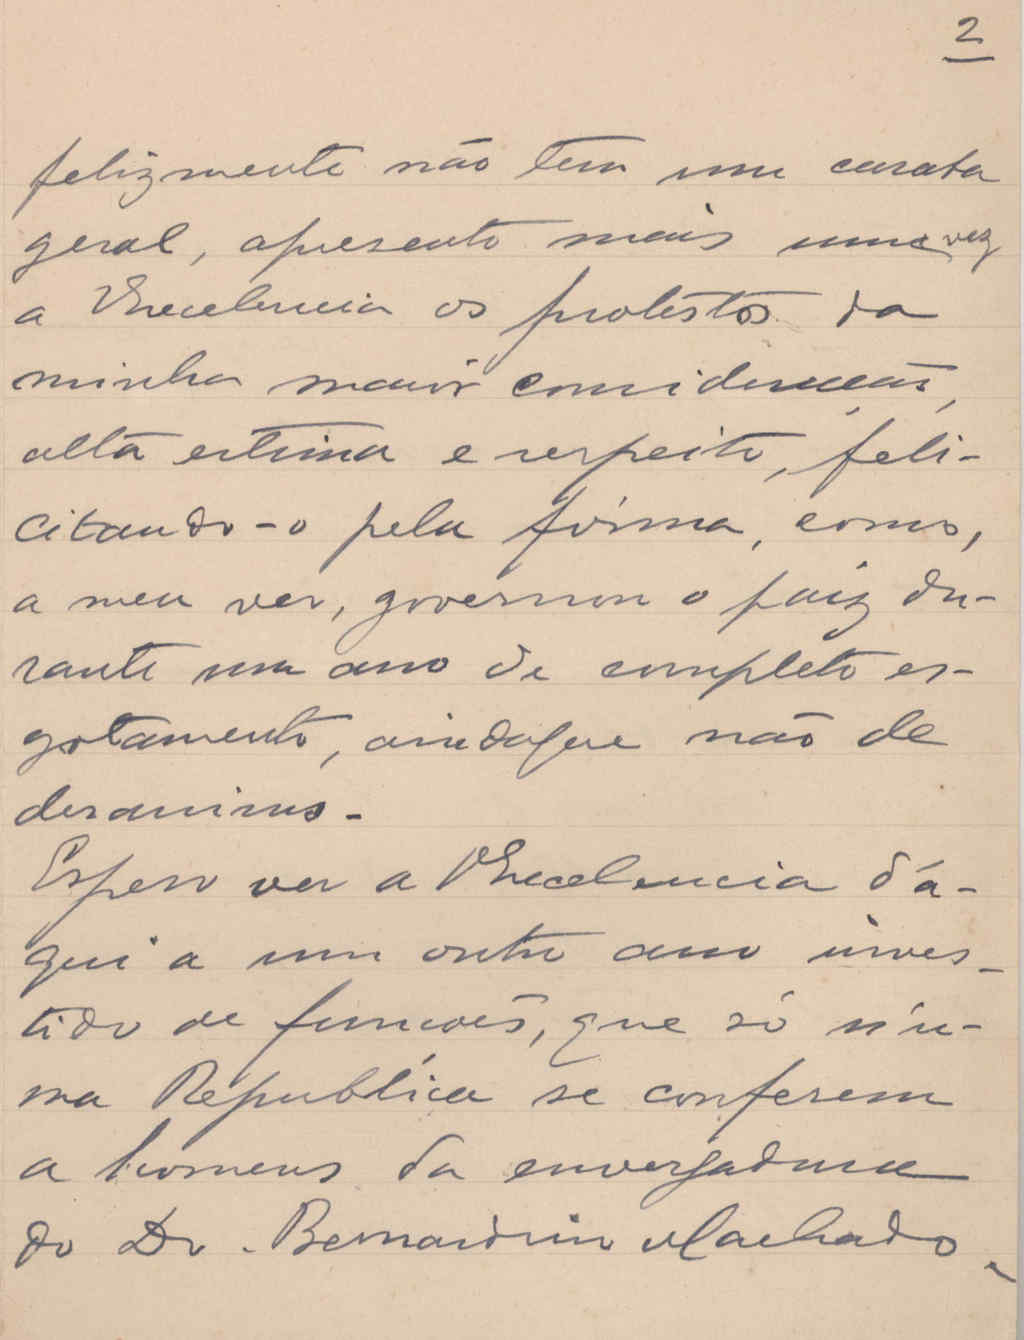 2
felizmente não tem um carata
geral, apresento mais uma vez
a VExcelencia os protéstos da
minha maior consideração,
alta estima e respeito, feli-
citando-o pela fórma, como,
a meu ver, governou o paiz du-
rante um ano de completo es-
gotamento, aindaque não de
desanimo.
Espero ver a VExcelencia d'a-
qui a um outro ano inves-
tido de funcões, que só n'u-
ma Republica se conferem
a homens da envergadura
do Dr. Bernardino Machado.